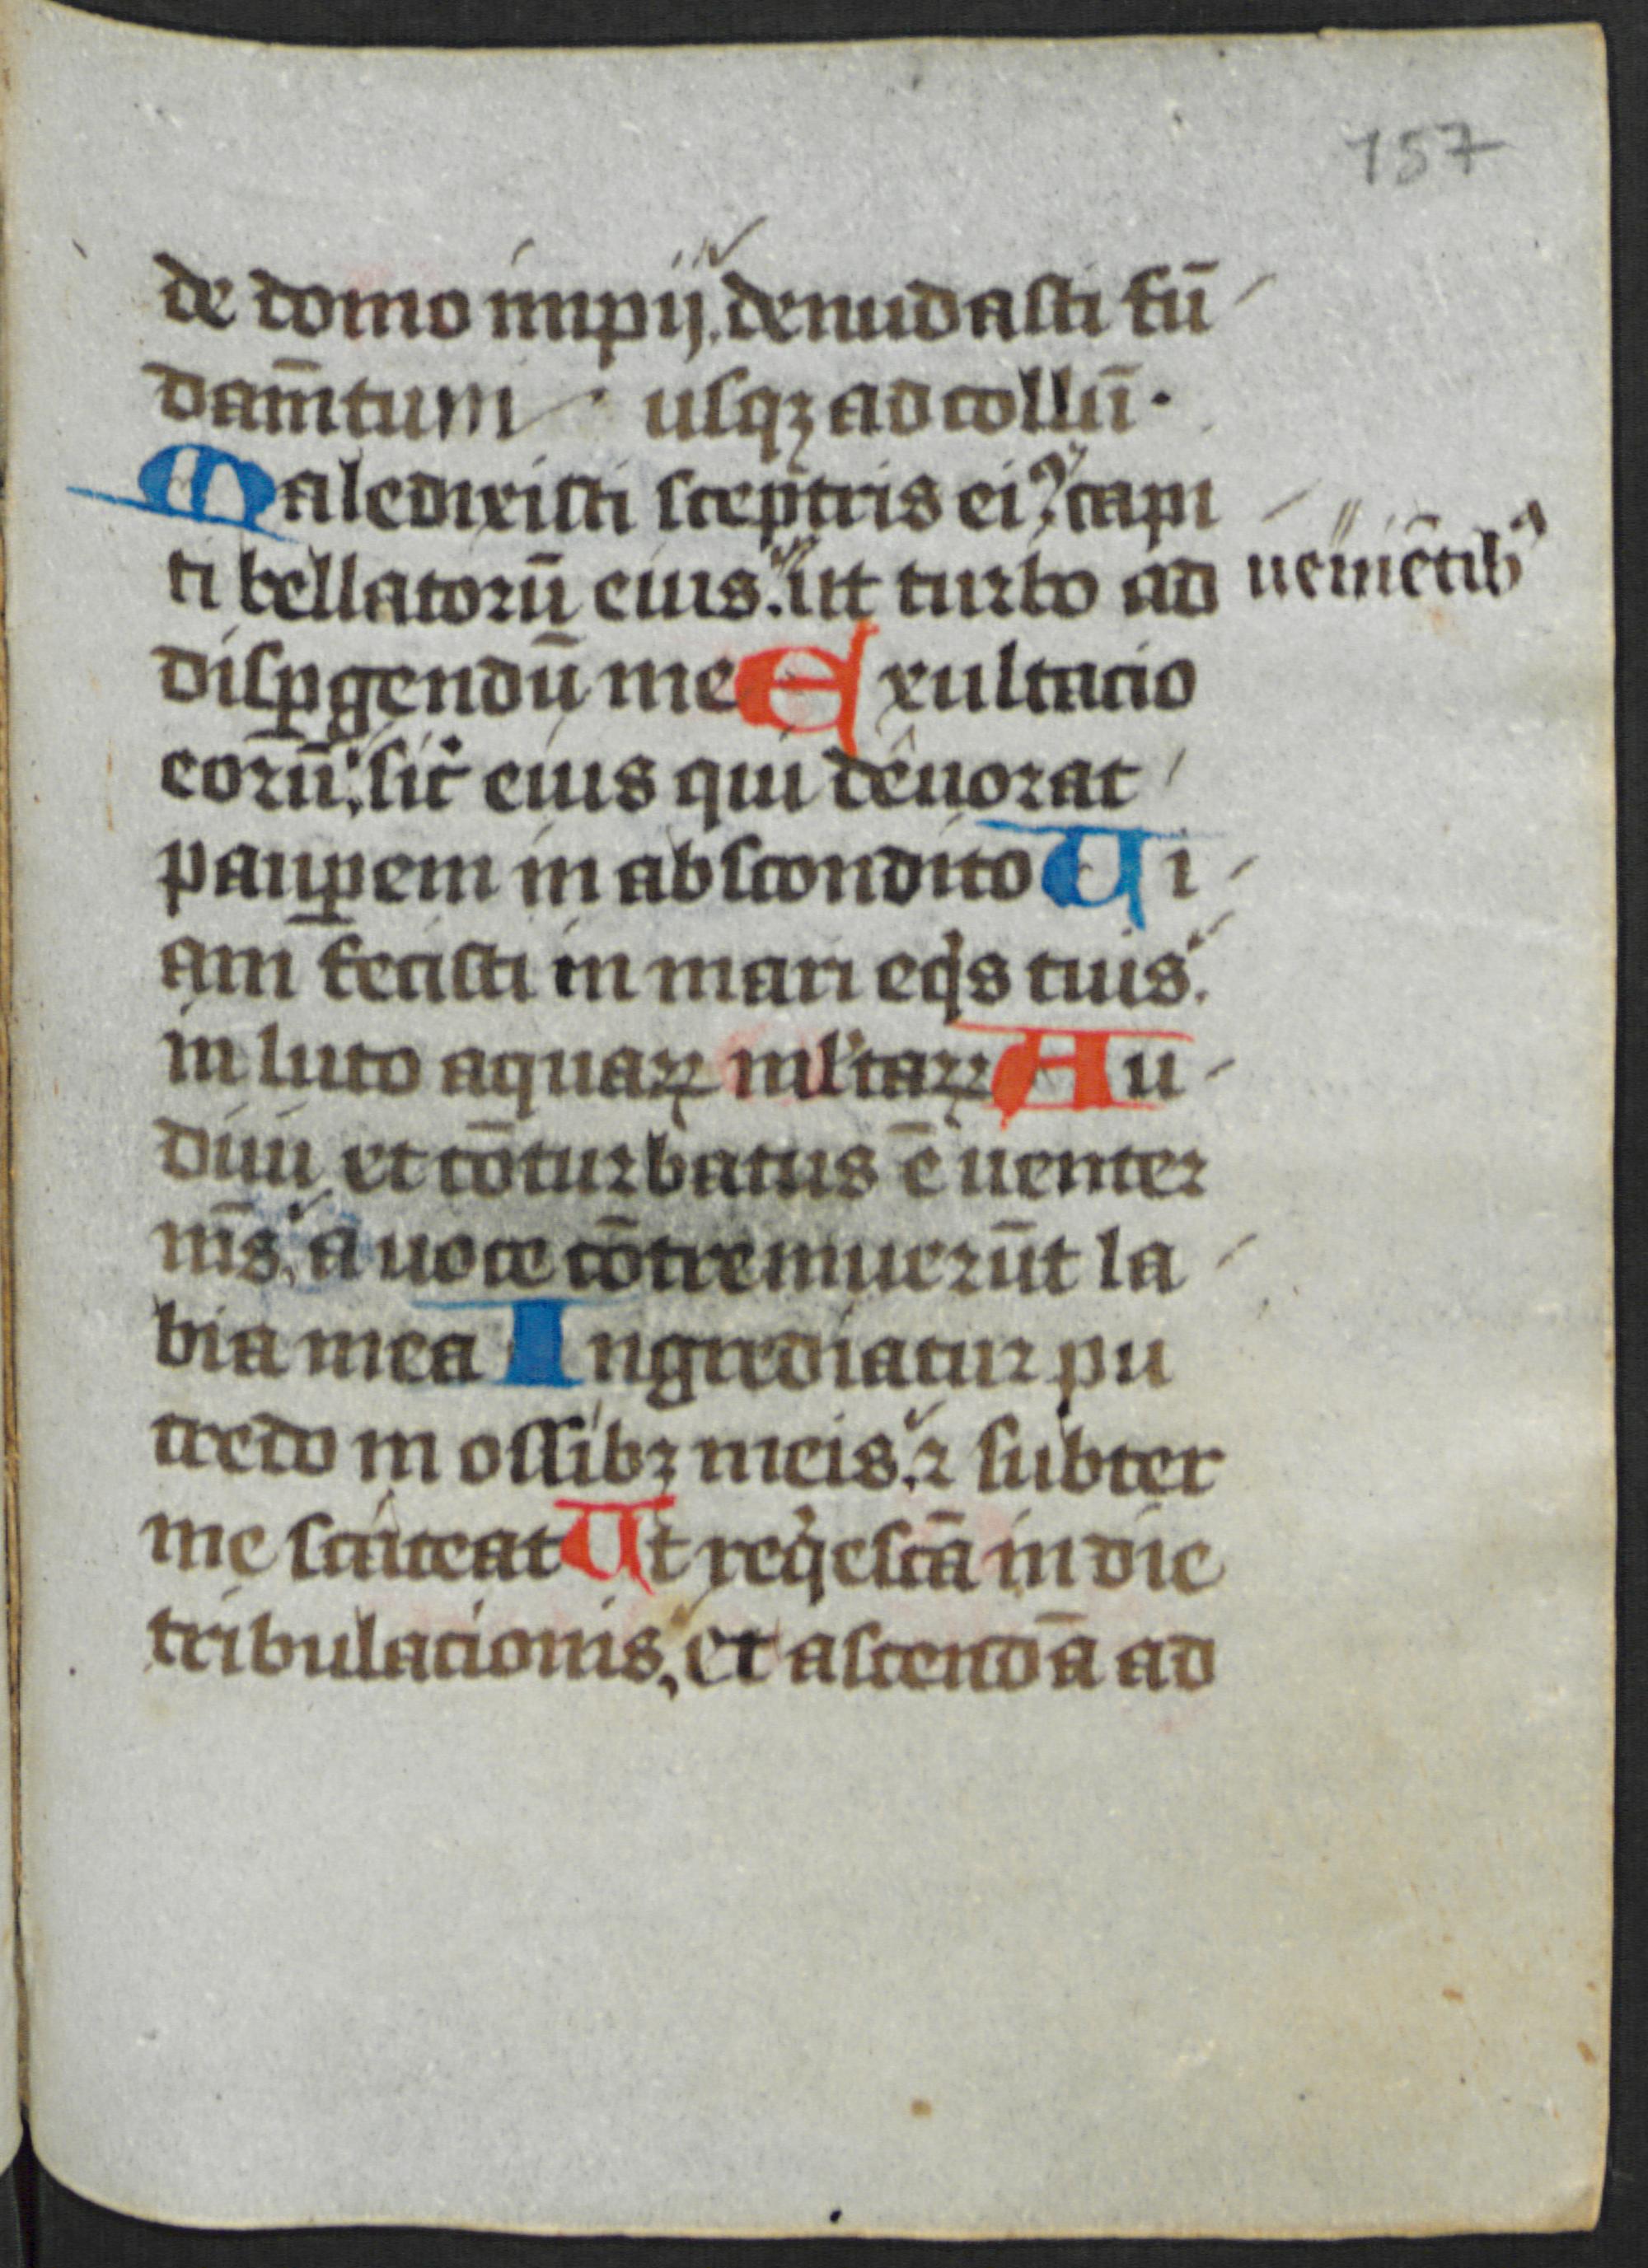 157
de domo impij. denudasti fū
dam̄tum usqꝫ ad collū.
Maledixisti sceptris eiꝰ capi
ti bellatorū eius. ut turbo ad ueniētibꝰ
disꝑgendū me Exultacio
eorū. sic̄ eius qui deuorat
pauꝑem in abscondito Ui
am fecisti in mari eqͥs tuis.
in luto aquaꝝ ml̓taꝝ Au
diui et cōturbatus ē uenter
m̄s. a uoce cōtremuerūt la
bia mea Ingrediatur pu
tredo in ossibꝫ meis. ꝛ subter
me scateat Ut reqͥescā in die
tribulacionis. et ascendā ad